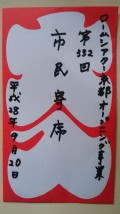 ロームシアター京都オープニング事業
第332回
市民寄席
平成28年9月20日